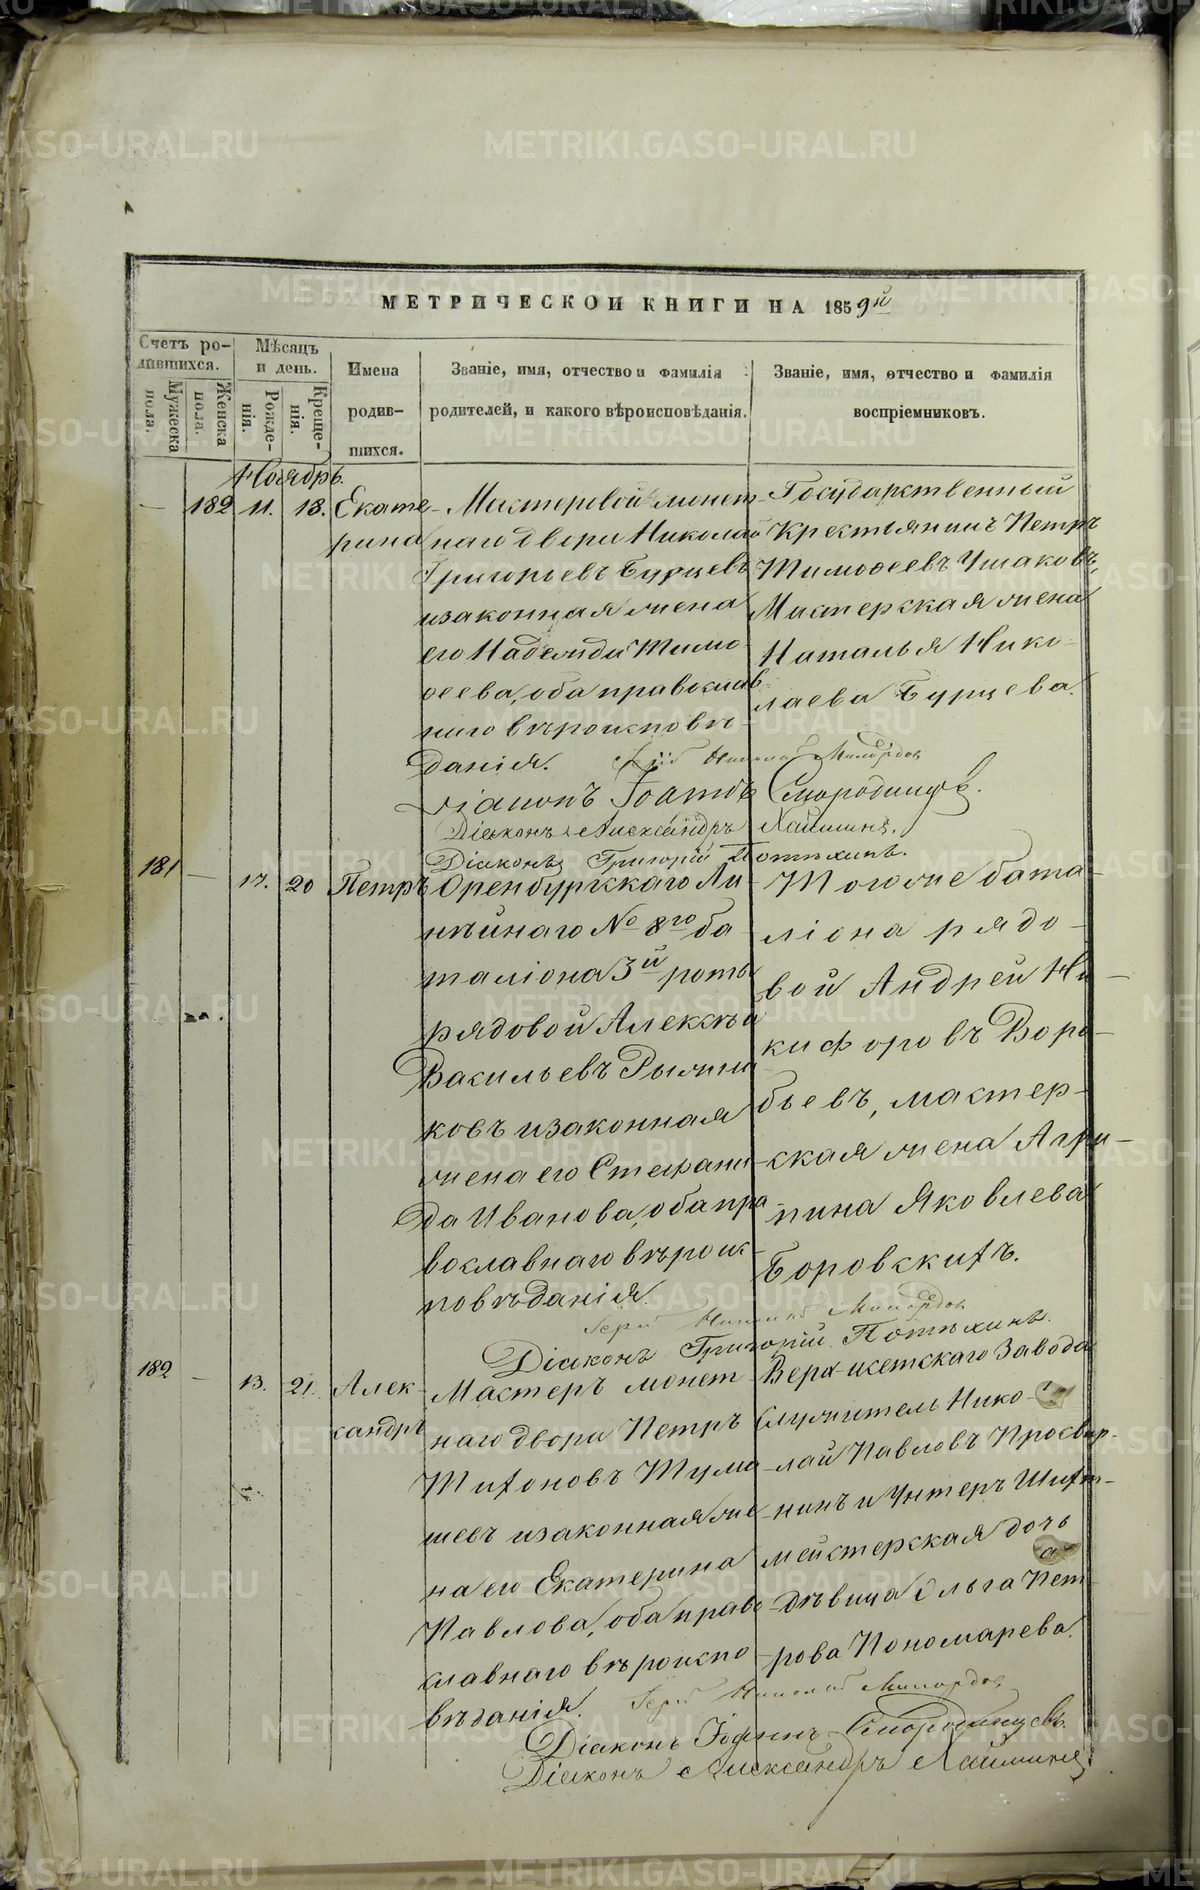 МЕТРИЧЕСКОЙ КНИГИ НА 1859й
Счетъ ро-
дившихся.
Мѣсяцъ
и день.
Мужеска
пола.
Женска
пола.
Рожде-
нія.
Креще-
нія.
Имена
родив-
шихся.
Званіе, имя, отчество и фамилія
родителей, и какого вѣроисповѣданія.
Званіе, имя, отчество и фамилія
воспріемниковъ.
Ноябрь.
— 182 11. 13. Екате-
рина
Мастеровой монет-
наго двора Николай
Григорьевъ Бурцевъ
изаконная жена
его Надежда Тимо
ѳеева, оба православ-
наго вѣроисповѣ-
данія.
Государственный
Крестьянинъ Петръ
Тимоѳеевъ Ушаковъ,
Мастерская жена
Наталья Нико-
лаева Бурцева.
Іерей
Діаконъ Іоаннъ Смородинцевъ.
Діаконъ Александръ
Діаконъ Григорій Потѣхинъ.
181 — 17. 20 Петръ
Оренбургскаго Ли-
нѣйнаго № 8го ба
таліона 3й роты
рядовой Алексѣй
Васильевъ Рыжи
ковъ изаконная
жена его Стефани
да Иванова, оба пра
вославнаго вѣроис-
повѣданія.
Того же бата-
ліона рядо-
вой Андрей Ни-
кифоровъ Воро-
бьевъ, мастер-
ская жена Агри-
пина Яковлева
Боровскихъ.
Іерей
Діаконъ Григорій Потѣхинъ.
182 — 13. 21. Алек-
сандръ
Мастеръ монет-
наго двора Петръ
Тихоновъ Тума
шевъ изаконная же-
на его Екатерина
Павлова, оба право-
славнаго вѣроиспо
вѣданія.
Верх-исетскаго Завода
Служитель Нико-
лай Павловъ Просвир-
нинъ и Унтеръ Шихт-
мейстерская дочь
дѣвица Ольга Пет-
рова Пономарева.
Іерей
Діаконъ Іоаннъ Смородинцевъ.
Діаконъ Александръ
METRIKI.GASO-URAL.RU